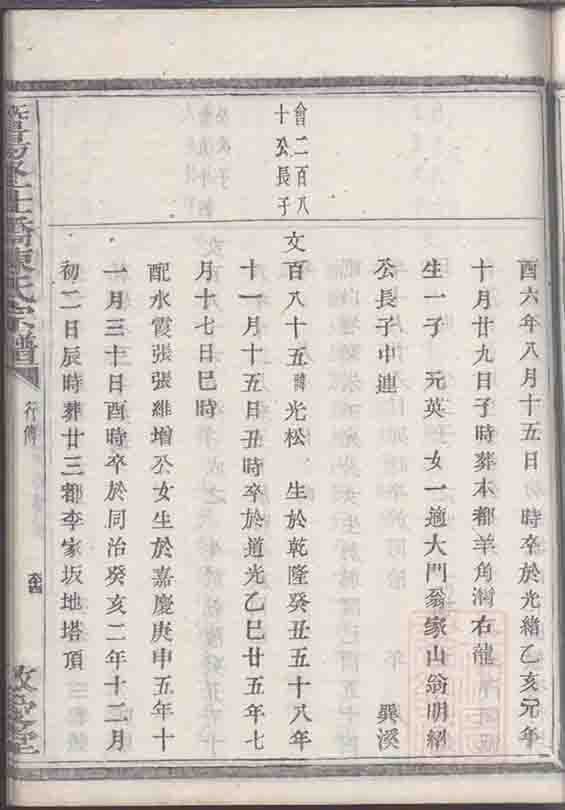 酉六年八月十五日　時卒於光緒乙亥元年
十月廿九日子時葬本都羊角灣右龍
生一子　元英　女一適大門翁家山翁明紹
公長子中連　巽溪
會二百八
十公長子
文百八十五諱光松　生於乾隆癸丑五十八年
十一月十五日丑時卒於道光乙巳廿五年七
月十七日巳時
配水霞張張維增公女生於嘉慶庚申五年十
一月三十日酉時卒於同治癸亥二年十二月
初二日辰時葬廿三都李家坂地塔頂
暨陽上橋陳氏宗譜
行傳
敦睦堂